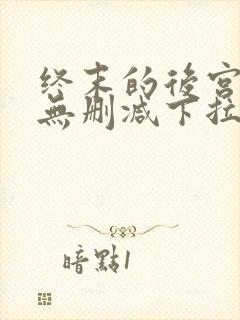 终末的後宫
無删减下拉
暗點1